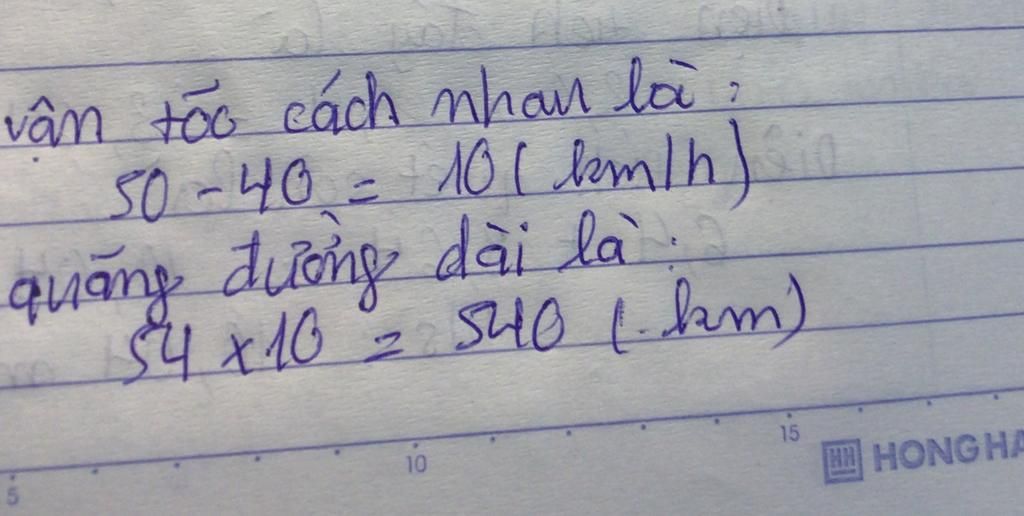 vận tốc cách nhau là:
50 - 40 = 10 ( km/h)
quãng đường dài là:
54 x 10 = 540 (.km)
5 10 15 HH HONG HA